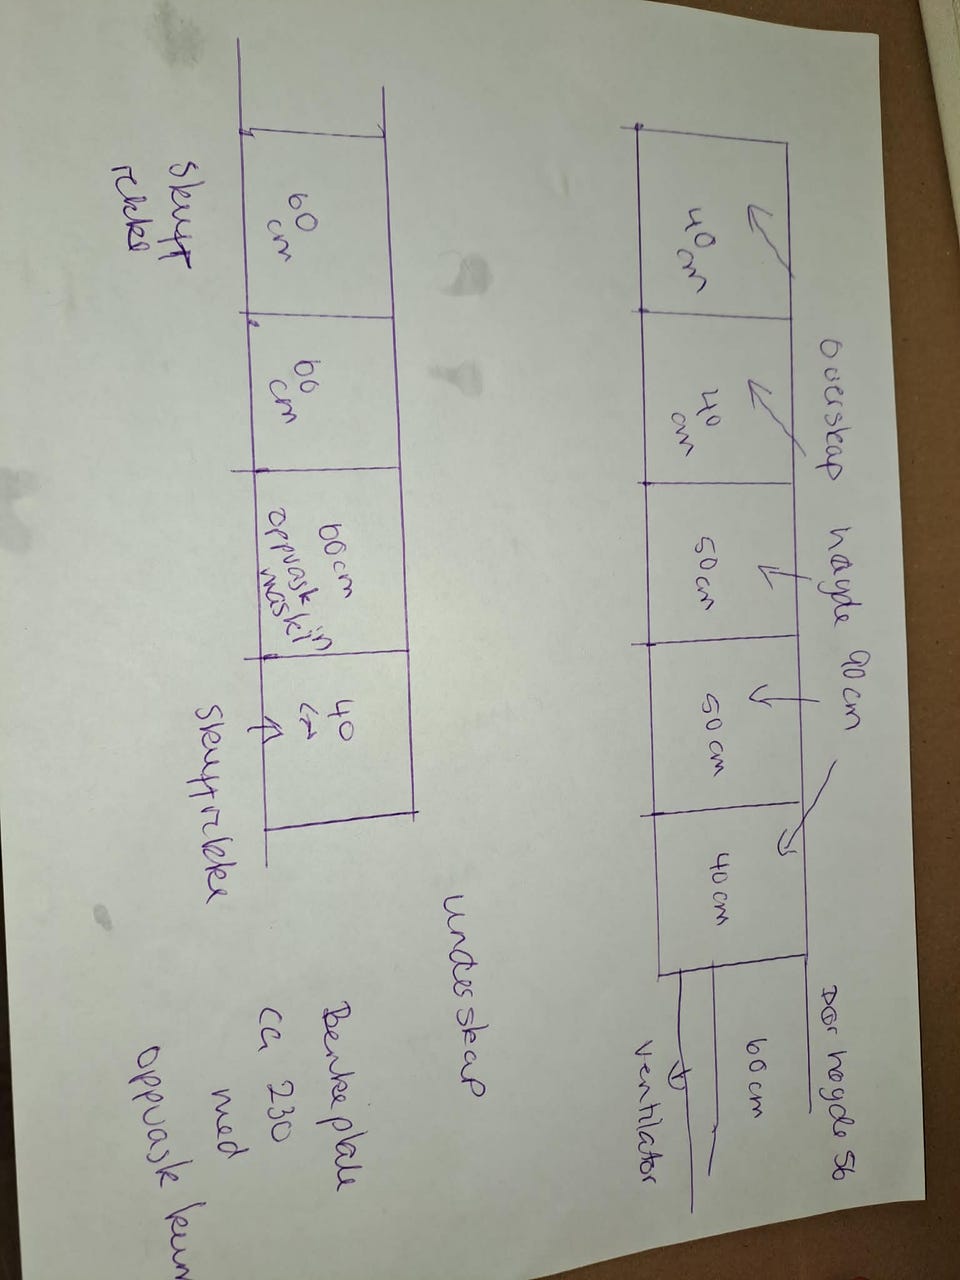 Overskap høyde 90 cm
Dør høyde 56
40 cm
40 cm
50 cm
50 cm
40 cm
60 cm
ventilator
underskap
60 cm
60 cm
60 cm
oppvask
maskin
40 cm
Skuff
rekke
Skuffrekke
Benkeplate
ca 230
med
oppvask kum